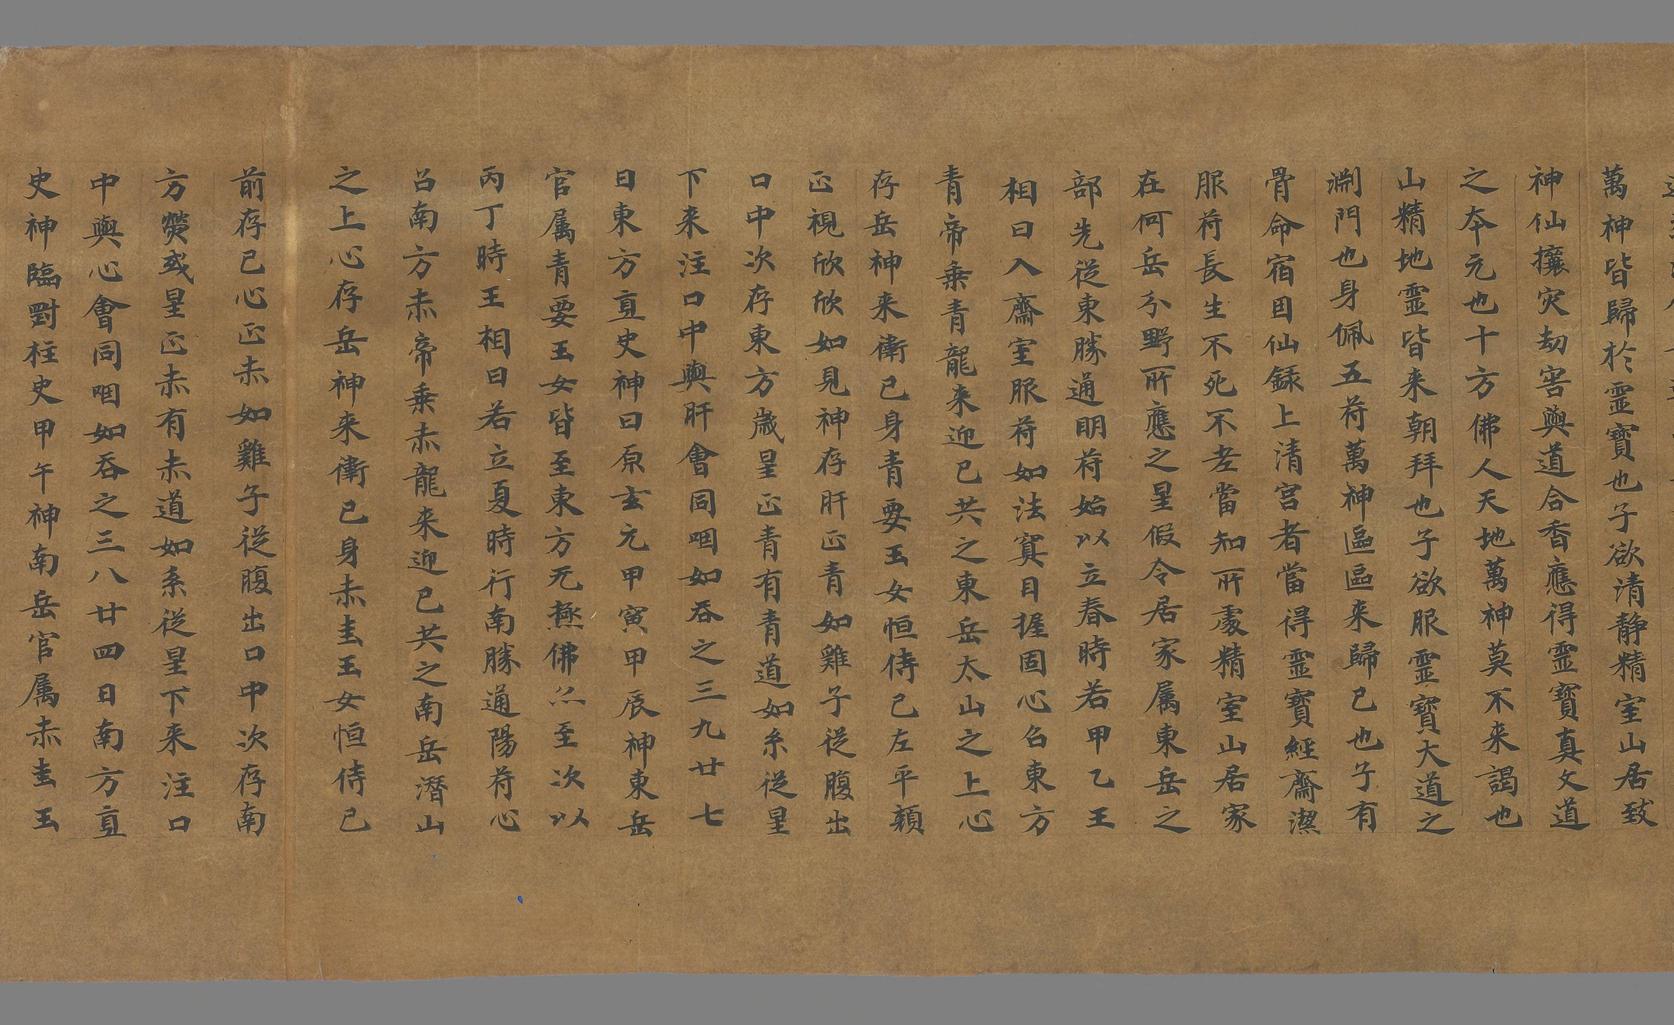 萬神皆歸於靈寶也子欲清靜精室山居致
神仙攘灾劫害與道合香應得靈寶真文道
之夲元也十方佛人天地萬神莫不来謁也
山精地靈皆来朝拜也子欲服靈寶大道之
渊門也身佩五苻萬神區區来歸已也子有
骨命宿因仙録上清宮者當得靈寶經齋潔
服苻長生不死不老當知所處精室山居家
在何岳分野所應之星假令居家属東岳之
部先従東勝通明苻始以立春時若甲乙王
相日入齋室服苻如法冥目握固心召東方
青帝乗青龍来迎已共之東岳太山之上心
存岳神来衛已身青要玉女恒侍已左平頼
正視欣欣如見神存肝正青如雞子従腹出
口中次存東方歳星正青有青道如糸従星
下来注口中與肝會同咽如吞之三九廿七
日東方直史神曰原玄元甲寅甲辰神東岳
官属青要玉女皆至東方无極佛亦至次以
丙丁時王相日若立夏時行南勝通陽苻心
召南方赤帝乗赤龍来迎已共之南岳潛山
之上心存岳神来衛已身赤圭玉女恒侍已
前存已心正赤如雞子従腹出口中次存南
方熒或星正赤有赤道如系従星下来注口
中與心會同咽如吞之三八廿四日南方直
史神臨對柱史甲午神南岳官属赤圭玉